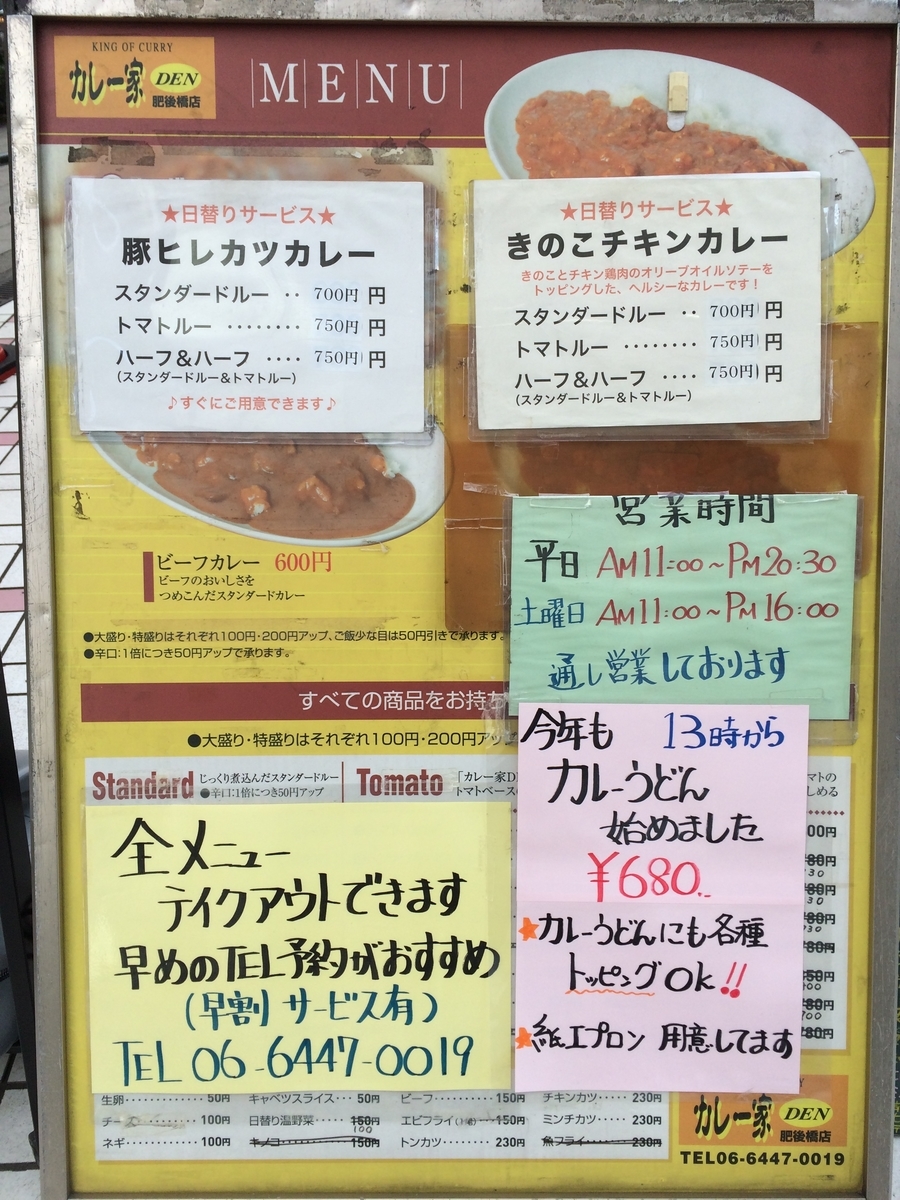 KING OF CURRY
カレー家 DEN
肥後橋店
MENU
★日替りサービス★
豚ヒレカツカレー
スタンダードルー ‥ 700円 円
トマトルー ‥‥‥‥ 750円 円
ハーフ＆ハーフ ‥‥ 750円 円
(スタンダードルー&トマトルー)
♪すぐにご用意できます♪
★日替りサービス★
きのこチキンカレー
きのことチキン鶏肉のオリーブオイルソテーを
トッピングした、ヘルシーなカレーです！
スタンダードルー ‥ 700円 円
トマトルー ‥‥‥‥ 750円 円
ハーフ＆ハーフ ‥‥ 750円 円
(スタンダードルー&トマトルー)
ビーフカレー 600円
ビーフのおいしさを
つめこんだスタンダードカレー
●大盛り・特盛りはそれぞれ100円・200円アップ、ご飯少な目は50円引きで承ります。
●辛口：1倍につき50円アップで承ります。
営業時間
平日 AM11:00～PM20:30
土曜日 AM11:00～PM16:00
通し営業しております
すべての商品をお持ち
●大盛り・特盛りはそれぞれ100円・200円アップ
Standard じっくり煮込んだスタンダードルー
●辛口：1倍につき50円アップ
Tomato 「カレー家D
トマトベース
今年も 13時から
カレーうどん
始めました
¥680.
★カレーうどんにも各種
トッピングOK!!
★紙エプロン 用意してます
全メニュー
テイクアウトできます
早めのTEL予約がおすすめ
(早割サービス有)
TEL 06-6447-0019
生卵‥‥‥‥50円
チーズ‥‥‥100円
ネギ‥‥‥‥100円
キャベツスライス‥‥50円
日替り温野菜‥‥150円
100
キノコ‥‥‥‥150円
ビーフ‥‥‥‥150円
エビフライ(1尾)‥‥150円
トンカツ‥‥‥230円
チキンカツ‥‥230円
ミンチカツ‥‥230円
魚フライ‥‥‥230円
カレー家 DEN
肥後橋店
TEL06-6447-0019